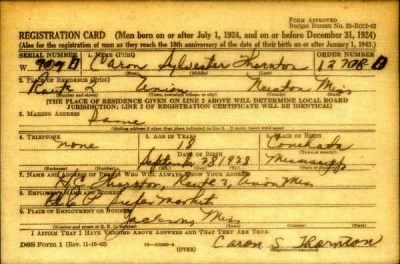 FORM APPROVED
Budget Bureau No. 33-R012-42
REGISTRATION CARD (Men born on or after July 1, 1924, and on or before December 31, 1924)
(Also for the registration of men as they reach the 18th anniversary of the date of their birth on or after January 1, 1943.)
SERIAL NUMBER 1. NAME (Print) ORDER NUMBER
W Caron Sylvester Thornton
2. PLACE OF RESIDENCE (Print)
Route 2 Union Newton Miss
(THE PLACE OF RESIDENCE GIVEN ON LINE 2 ABOVE WILL DETERMINE LOCAL BOARD
JURISDICTION; LINE 2 OF REGISTRATION CERTIFICATE WILL BE IDENTICAL)
3. MAILING ADDRESS
Same
4. TELEPHONE 5. AGE IN YEARS 6. PLACE OF BIRTH
none 18 Conehatta
DATE OF BIRTH
September Mississippi
7. NAME AND ADDRESS OF PERSON WHO WILL ALWAYS KNOW YOUR ADDRESS
Thornton, Route 2, Union Miss
8. EMPLOYER'S NAME AND ADDRESS
Super Market
9. PLACE OF EMPLOYMENT OR BUSINESS
Jackson, Miss
I AFFIRM THAT I HAVE VERIFIED ABOVE ANSWERS AND THAT THEY ARE TRUE.
DSS Form 1 (OVER) Caron S. Thornton